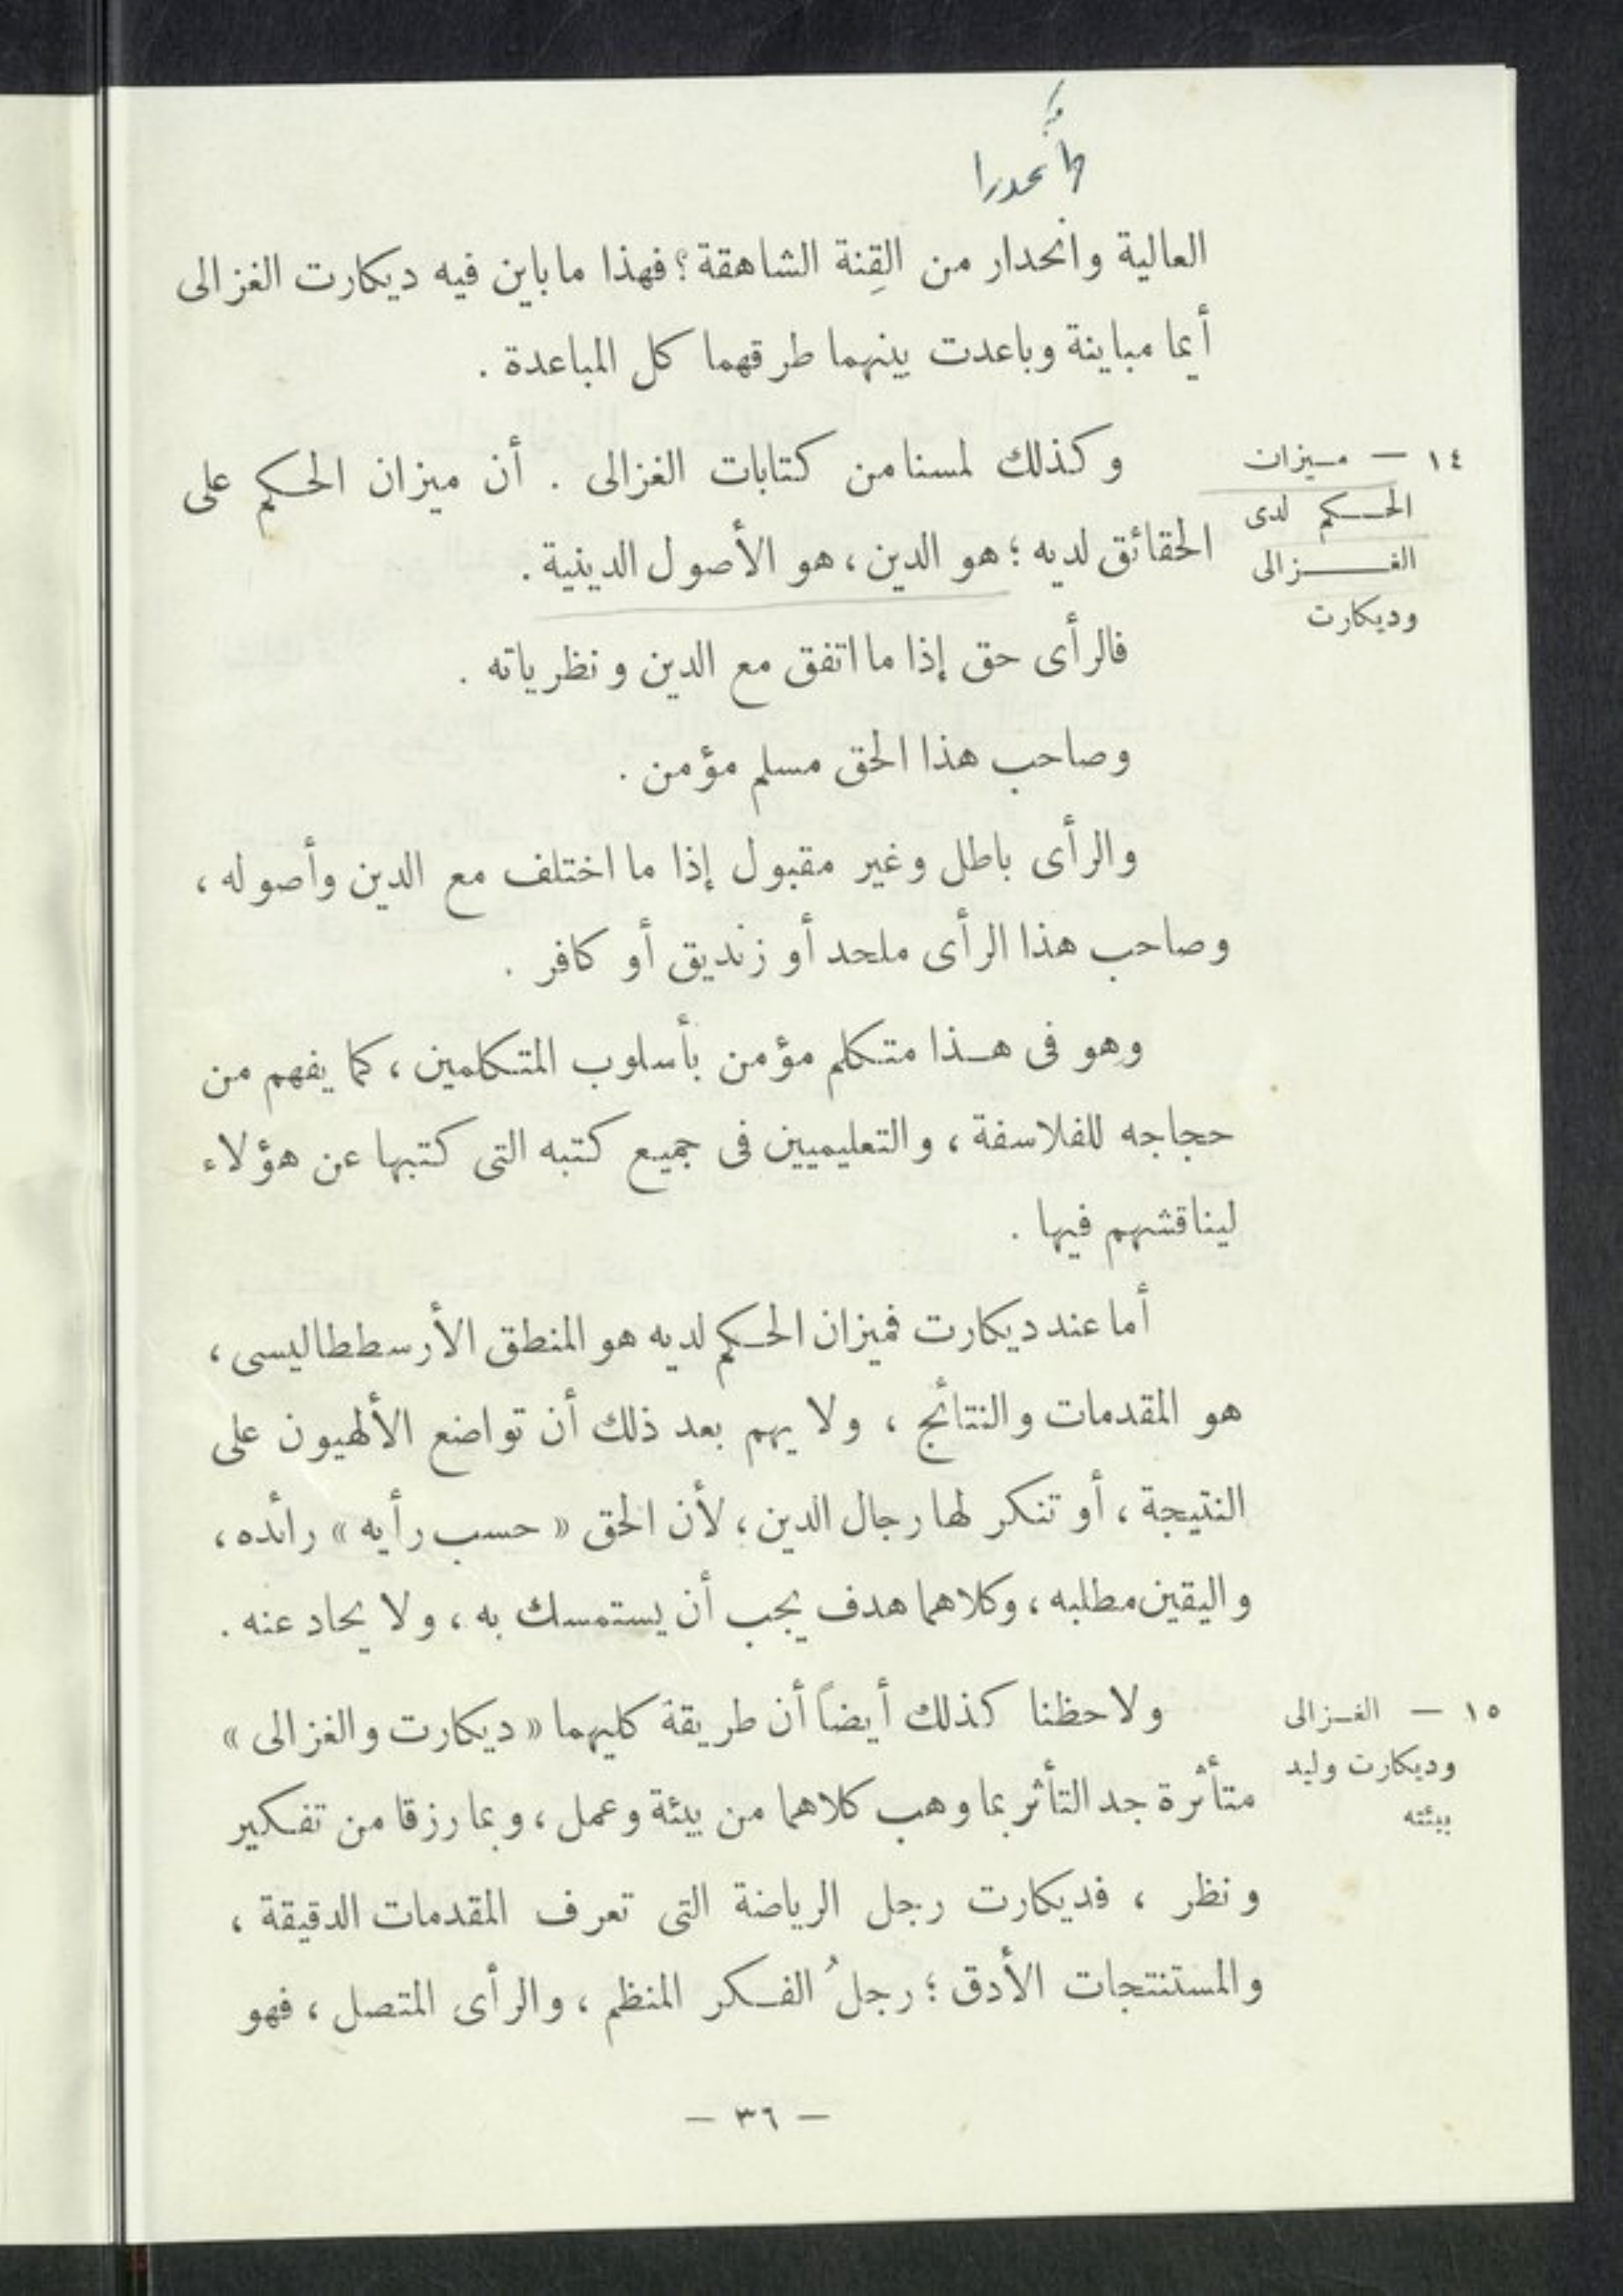 العالية وانحدار من القِنة الشاهقة؟ فهذا ما باين فيه ديكارت الغزالى
أيما مباينة وباعدت بينهما طرقهما كل المباعدة .
١٤ — ميزان
الحكم لدى
الغزالى
وديكارت
وكذلك لمسنا من كتابات الغزالى . أن ميزان الحكم على
الحقائق لديه ؛ هو الدين ، هو الأصول الدينية .
فالرأى حق إذا ما اتفق مع الدين ونظرياته .
وصاحب هذا الحق مسلم مؤمن .
والرأى باطل وغير مقبول إذا ما اختلف مع الدين وأصوله ،
وصاحب هذا الرأى ملحد أو زنديق أو كافر .
وهو فى هذا متكلم مؤمن بأسلوب المتكلمين ، كما يفهم من
حجاجه للفلاسفة ، والتعليميين فى جميع كتبه التى كتبها عن هؤلاء
ليناقشهم فيها .
أما عند ديكارت فميزان الحكم لديه هو المنطق الأرسططاليسى ،
هو المقدمات والنتائج ، ولا يهم بعد ذلك أن تواضع الألهيون على
النتيجة ، أو تنكر لها رجال الدين ، لأن الحق « حسب رأيه » رائده ،
واليقين مطلبه ، وكلاهما هدف يجب أن يستمسك به ، ولا يحاد عنه .
١٥ — الغزالى
وديكارت وليد
بيئته
ولاحظنا كذلك أيضاً أن طريقة كليهما « ديكارت والغزالى »
متأثرة جد التأثر بما وهب كلاهما من بيئة وعمل ، وبما رزقا من تفكير
ونظر ، فديكارت رجل الرياضة التى تعرف المقدمات الدقيقة ،
والمستنتجات الأدق ؛ رجلُ الفكر المنظم ، والرأى المتصل ، فهو
— ٣٦ —